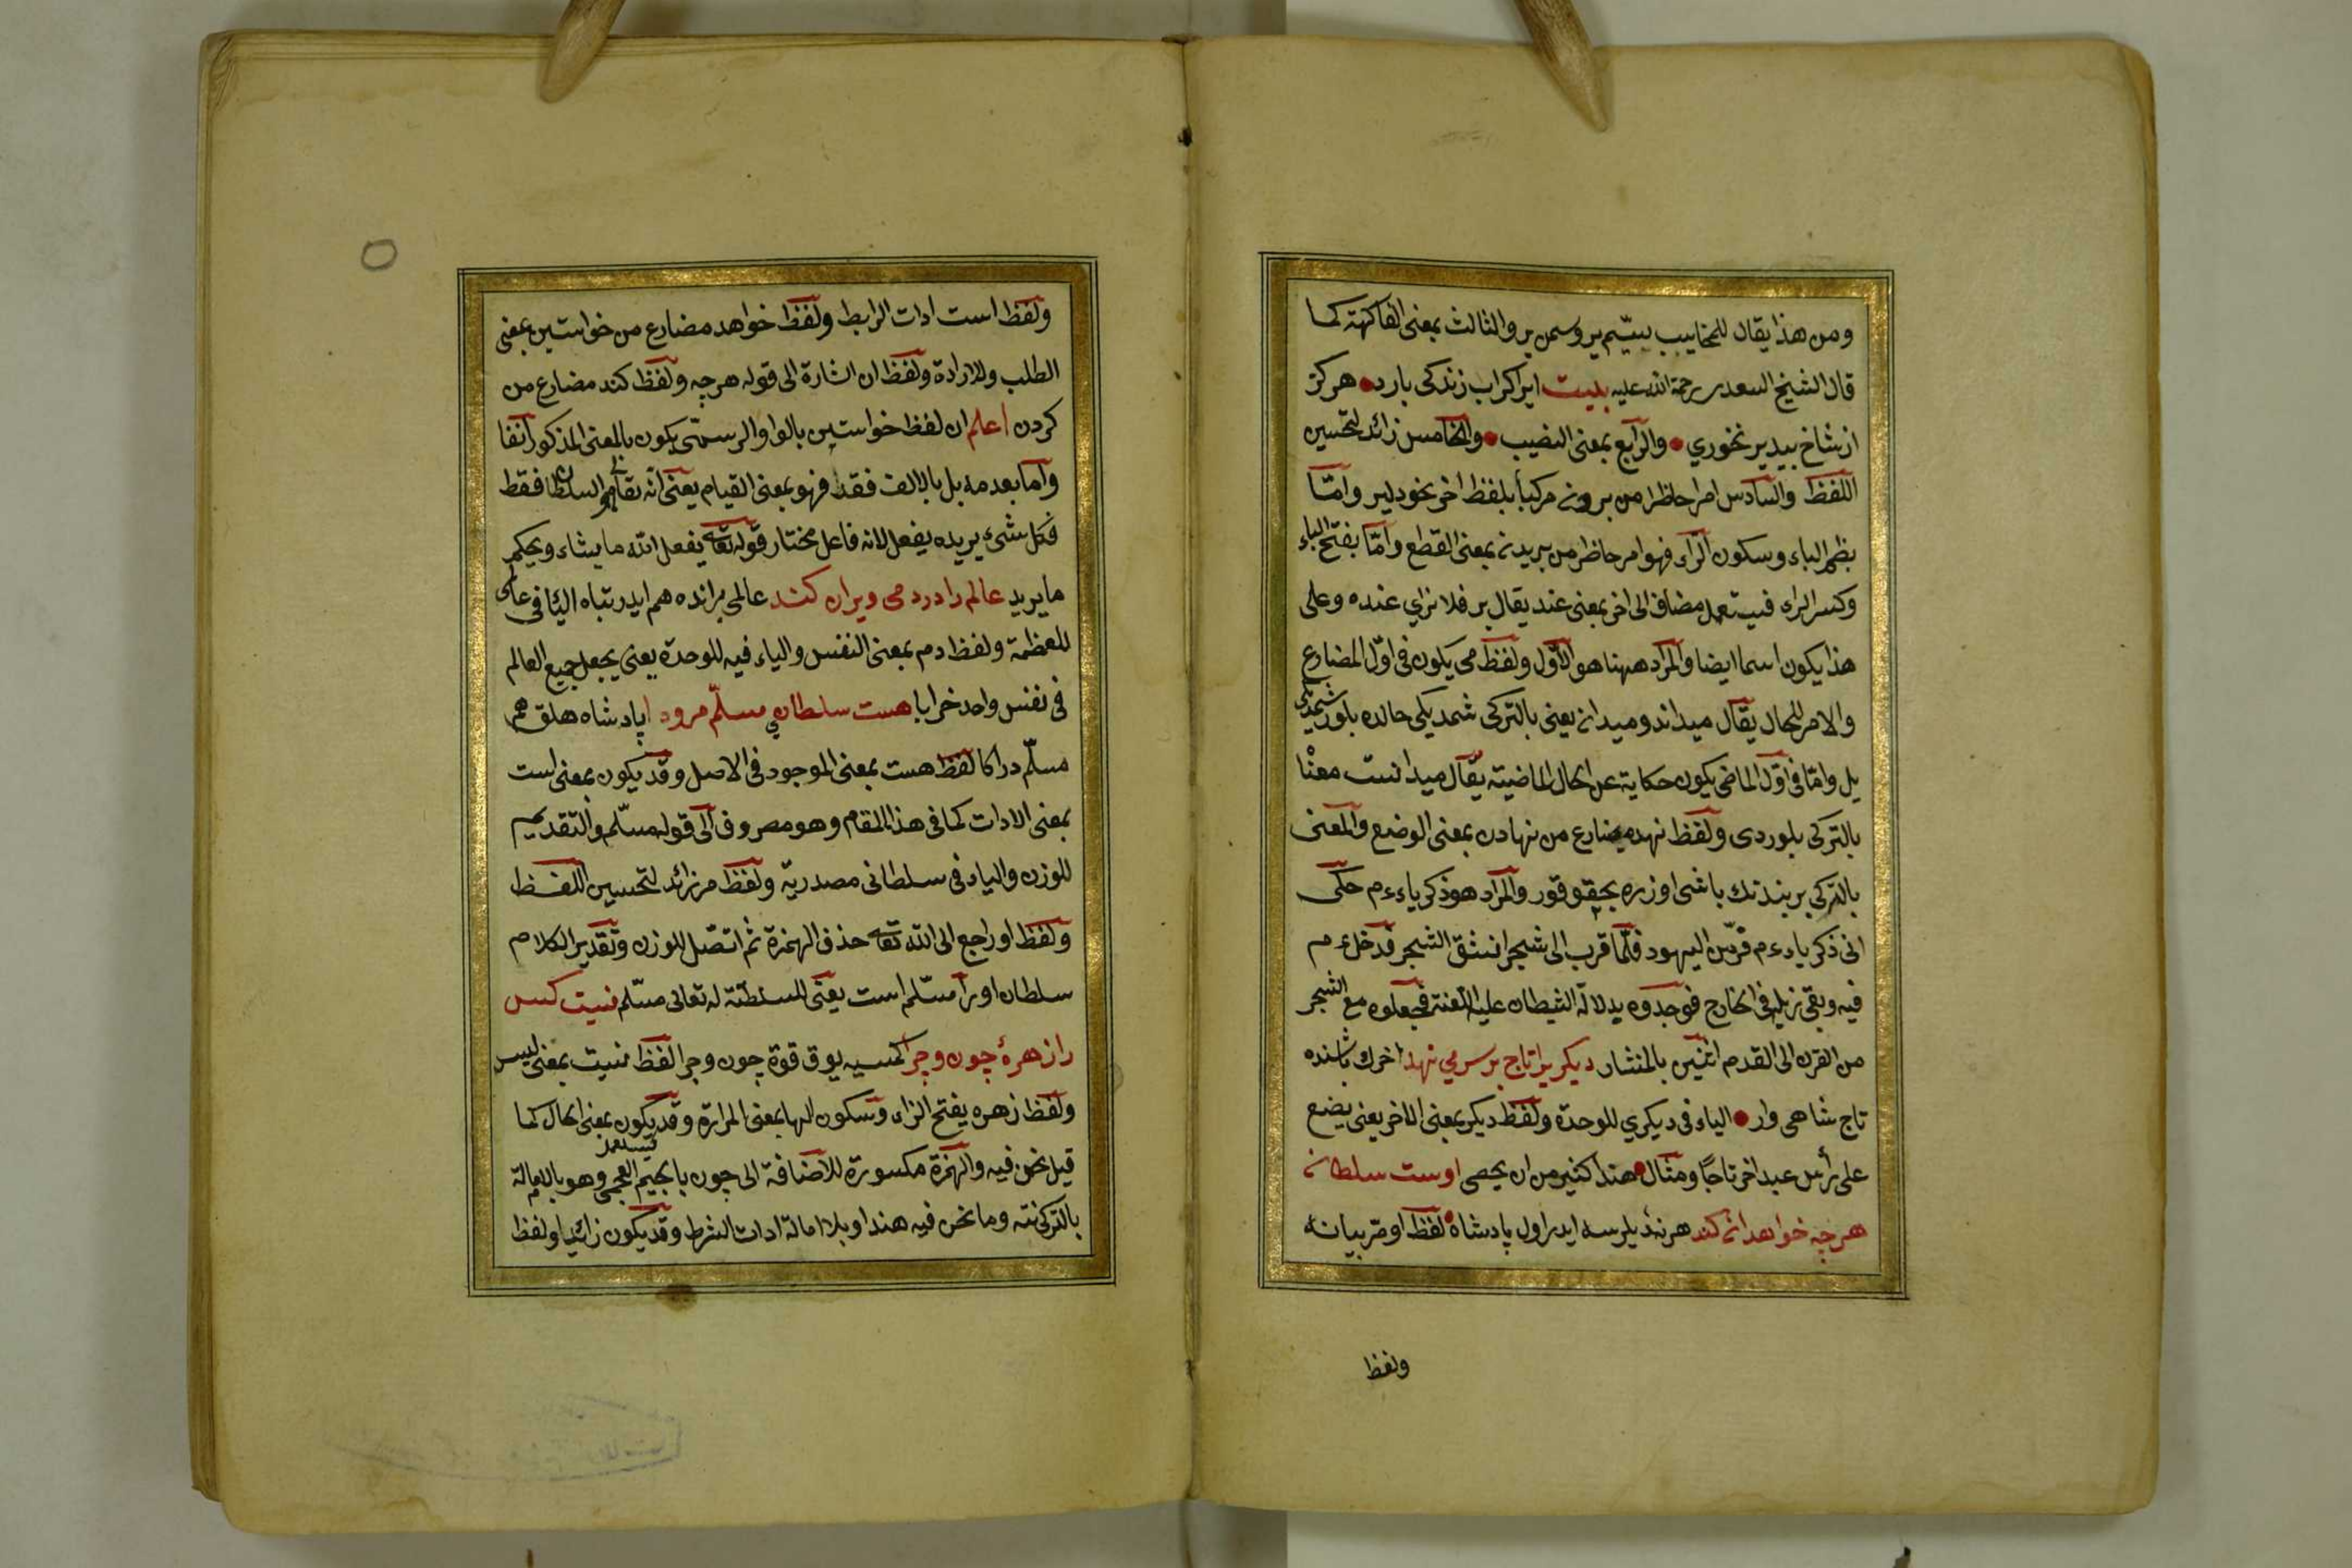 ومن هذا يقال للمخاييب بسيم بر وسمن بر والثالث بمعنى الفاكهة كما
قال الشيخ السعدى رحمة الله عليه بيت ابر اكر اب زندكى بارد هركز
از شاخ بيد بر نخوري والرابع بمعنى النصيب والخامس زائد لتحسين
اللفظ والسادس امر حاظر من بردن مركبا بلفظ اخر نحو دلبر وامّا
بظم الباء وسكون الراء فهو امر حاظر من بريدن بمعنى القطع وامّا بفتح الباء
وكسر الراء فيستعمل مضاف الى اخر بمعنى عند يقال بر فلان اي عنده وعلى
هذا يكون اسما ايضا والمراد ههنا هو الاوّل ولفظ مى يكون فى اوّل المضارع
والامر للحال يقال ميداند وميدان يعنى بالتركى شمديكى حالده بلور شمدى
بل وامّا فى اوّل الماضى يكون حكاية عن الحال الماضية يقال ميدانست معنا
بالتركى بلوردى ولفظ نهد مضارع من نهادن بمعنى الوضع والمعنى
بالتركى بر بندنك باشى اوزره بچقو قور والمراد هو ذكرياء عم حكى
انى ذكرياء عم فرّ من اليهود فلمّا قرب الى شجر انشق الشجر فدخل عم
فيه وبقى ذيله فى الخارج فوجدوه بدلالة الشيطان عليه اللعنة فجعلوه مع الشجر
من القرن الى القدم اثنين بالمنشار ديكريرا تاج بر سر مي نهد اخرك باشنده
تاج شاهى وار الياء فى ديكري للوحدة ولفظ ديكر بمعنى الاخر يعنى يضع
على رأس عبد اخر تاجًا ومثال هذا كثير من ان يحصى اوست سلطان
هرچه خواهد ان كند هر نه ديلرسه ايدر اول پادشاه لفظ او مرّ بيانه
ولفظ
ولفظ است ادات الرابط ولفظ خواهد مضارع من خواستين بمعنى
الطلب والارادة ولفظ ان اشارة الى قوله هرچه ولفظ كند مضارع من
كردن اعلم ان لفظ خواستين بالواو الرسمّى يكون بالمعنى المذكور آنفا
وامّا بعدمه بل بالالف فقد فهو بمعنى القيام يعنى انّه تعالى هو السلطان فقط
فكل شىء يريده يفعل لانه فاعل مختار قوله تعا يفعل الله ما يشاء ويحكم
ما يريد عالم را در دمى ويران كند عالمى بر انده هم ايدر تباه الياء فى عالمى
للعظمة ولفظ دم بمعنى النفس والياء فيه للوحدة يعنى يجعل جميع العالم
فى نفس واحد خرابا هست سلطاني مسلّم مرورا پادشاهلق هم
مسلّم در اكا لفظ هست بمعنى الموجود فى الاصل وقد يكون بمعنى است
بمعنى الادات كما فى هذا المقام وهو مصروف الى قوله مسلّم والتقديم
للوزن والياء فى سلطانى مصدريّة ولفظ مر زائد لتحسين اللفظ
ولفظ او راجع الى الله تعا حذف الهمزة ثم اتصّل للوزن وتقدير الكلام
سلطان او را مسّلم است يعنى للسلطنة له تعالى مسّلم نيست كس
را زهرهٔ چون وچرا كمسيه يوق قوة چون وچرا لفظ نيست بمعنى ليس
ولفظ زهره بفتح الزاء وسكون الها بمعنى المرارة وقد يكون بمعنى الحال كما
قيل نحن فيه والهمزة مكسورة للاضافة الى چون با الجيم العجمى وهو بالامالة
بالتركى نته وما نحن فيه هذا وبلا امالة ادات الشرط وقد يكون زائدا ولفظ